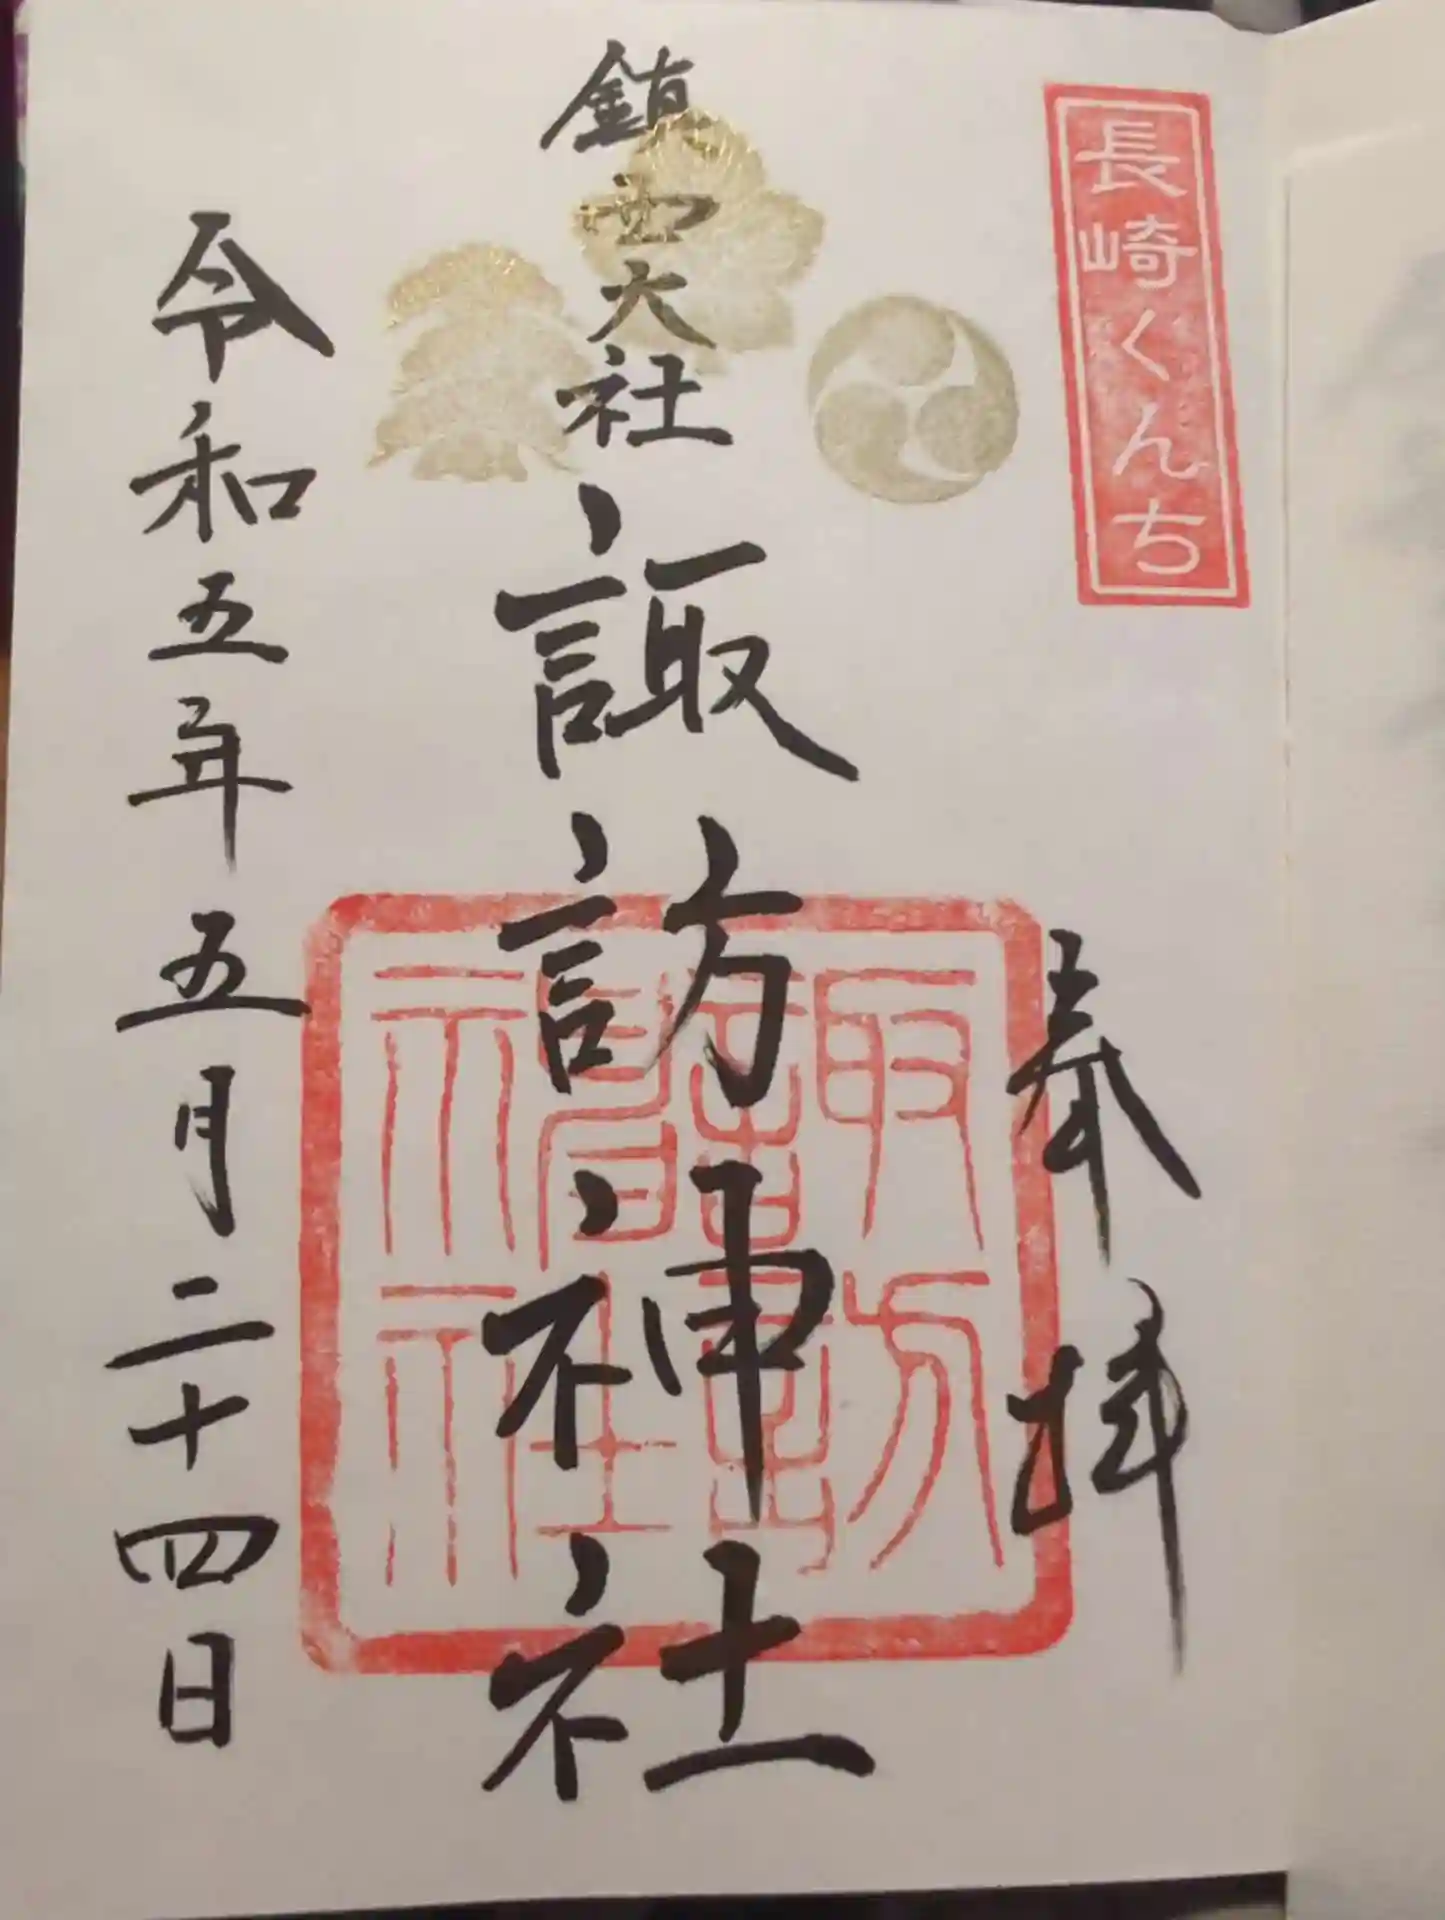 長崎くんち
奉拝
鎮西大社
諏訪神社
令和五年五月二十四日